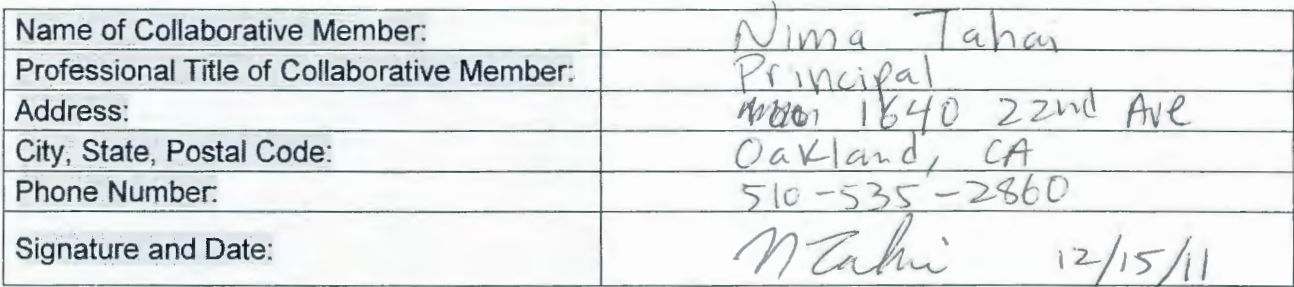 Name of Collaborative Member: Nima Tahai
Professional Title of Collaborative Member: Principal
Address: 1640 22nd Ave
City, State, Postal Code: Oakland, CA
Phone Number: 510-535-2860
Signature and Date: N Tahai 12/15/11